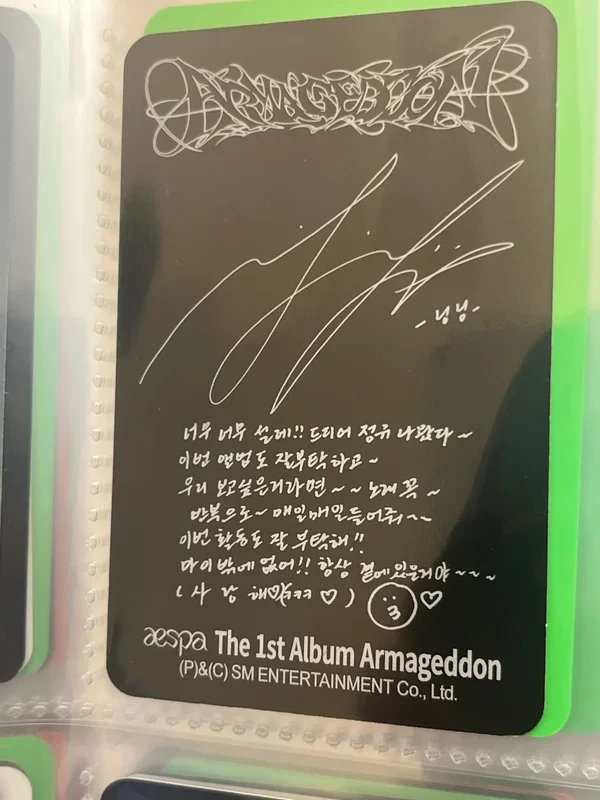 ARMAGEDDON
-닝닝-
너무 너무 설레!! 드디어 정규 나왔다~
이번 앨범도 잘부탁하고~
우리 보고싶은거라면~~ 노래 꼭~
반복으로~ 매일매일들어줘~~
이번 활동도 잘 부탁해!!
마이밖에 없어!! 항상 곁에있을거야~~~
(사랑해 ㅋㅋ ♡)
aespa The 1st Album Armageddon
(P)&(C) SM ENTERTAINMENT Co., Ltd.